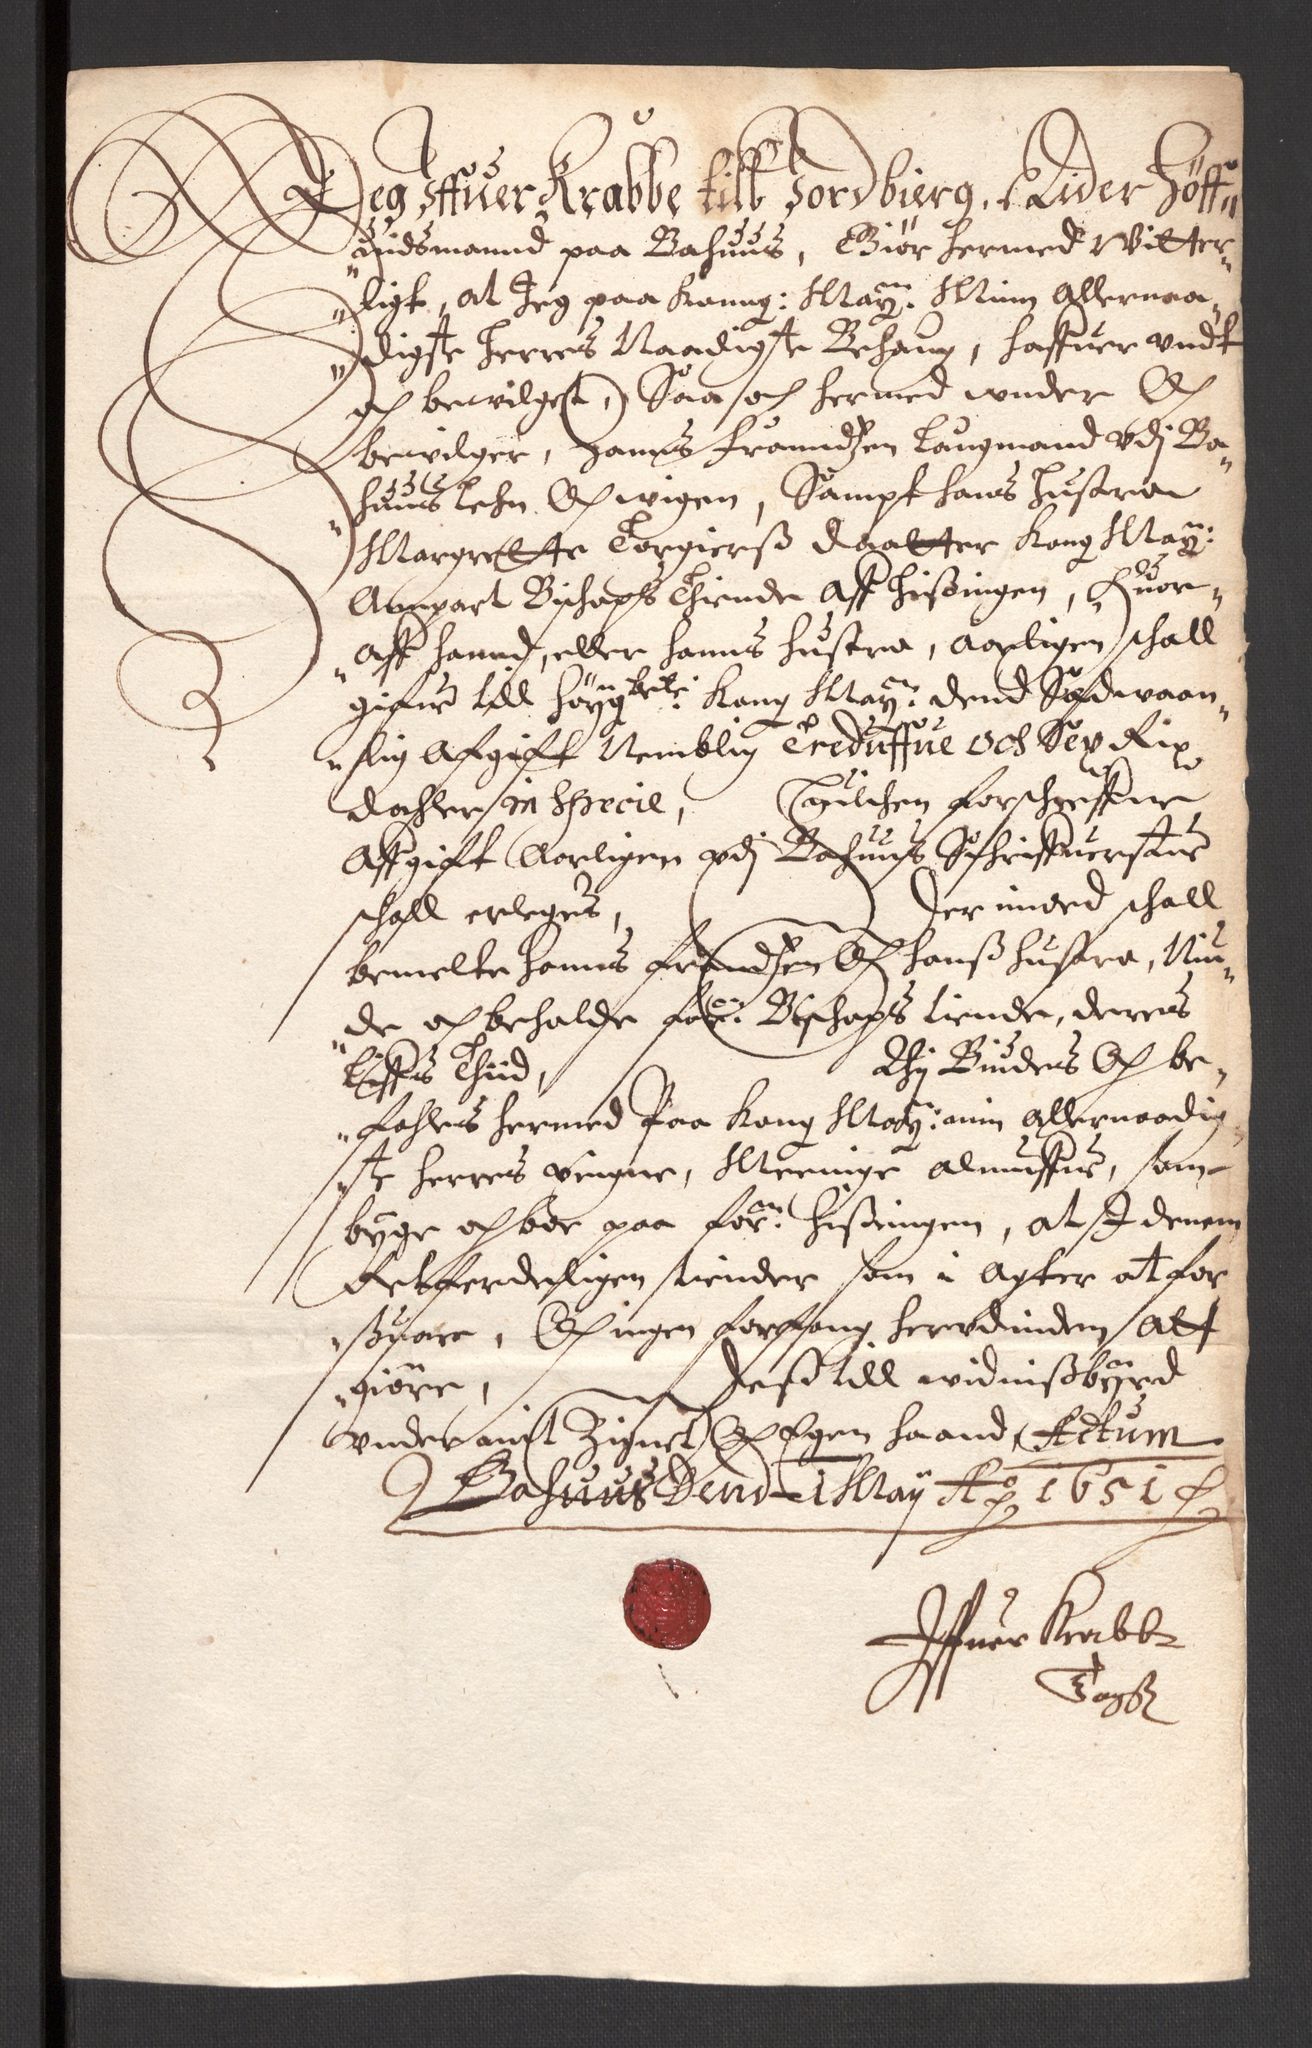 Jeg Iffuer Krabbe till Jordbierg, Rider Höff„
„uidsmannd paa Bahuus, Giör hermed Witter„
„ligt, at Jeg paa Kong: May: Minn Allernaa„
„digste Herres Naadigste Behaug, haffuer undt
och beuilget, Saa och hermed under Och
beuilger, Hanns Franndzen Laugmand udj Ba„
„huus Lehn Och wigen, Sampt hans Hustrue
Margrette Torgierß Daatter Kong May:
Annpart Bischops Thiende Aff Hisingen, Huor„
„Aff hannd, eller hanns hustru, aarligen schall
gifue till höyg bete: Kong May: dend Sædwaan„
„lig Afgift Nemblig Tredüffue och Sex Rix
daler in Specie, Huilchen forschreffne
Affgift Aarligen udj Bahuus Schriffuerstue
schall erleges, Der imod schall
bemelte Hanns Frandzen Och hanß hustru, Niu„
„de och beholde forn: Bischops tiende, deres
Liffs Thiid, Thj Biudes Och be„
„fahles hermed paa Kong May: min Allernaadig„
„ste Herres Vegne, Meenige Almuffue, som
byge och boe paa forn: Hisingen, at I denem
Retferdeligen tiender som i Agter at for
„suare, Och ingen forfang herudinden Att
„giöre, Deß till widnißbyrd
under mit Zignet Och Egen haand, Actum
Bahuus Dend 1 May Ao 1651
Iffuer Krabbe